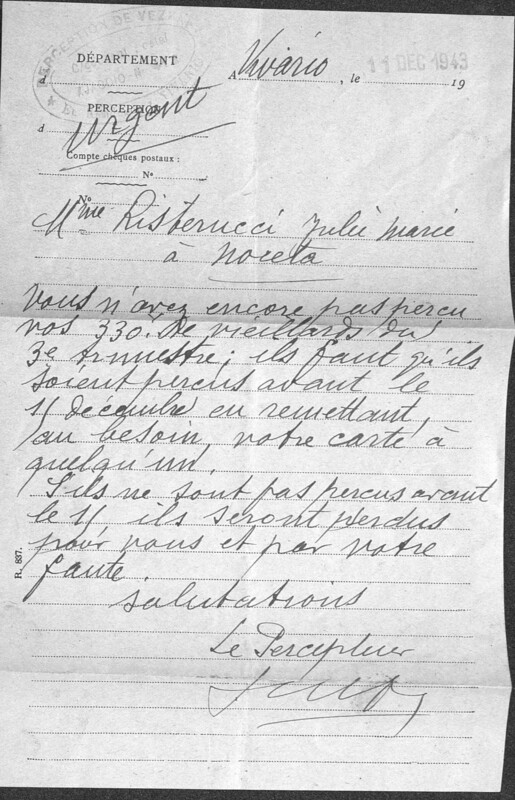 PERCEPTION DE
DÉPARTEMENT
d
A Vivario, le 11 DEC 1943 19
PERCEPTION
d
Urgent
Compte chèques postaux :
N°
N°
Mme Risterucci Julie Marie
à Noceta
Vous n'avez encore pas perçu
vos 330. de vieillards du
3e trimestre; ils faut qu'ils
soient perçus avant le
décembre en remettant,
au besoin, votre carte à
quelqu'un.
S'ils ne sont pas perçus avant
le ils seront perdus
pour vous et par votre
faute.
Salutations
Le Percepteur
R. 837.